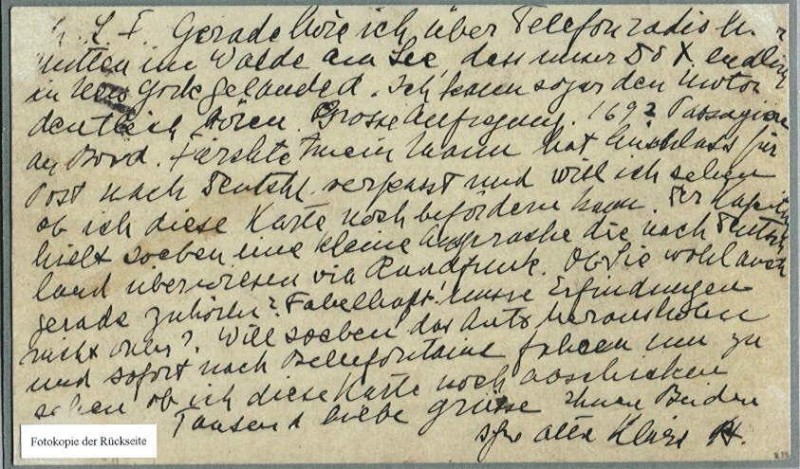 L. F. Gerade höre ich über Telefonradio
mitten im Walde am See dass unser DO X endlich
in New York gelanded. Ich kann sogar den Motor
deutlich hören. Grosse Aufregung. 1692 Passagiere
an Bord. Fürchte mein Mann hat Anschluss für
Post nach Deutschl. verpasst und will ich sehen
ob ich diese Karte noch befördern kann. Der Kapitän
hielt soeben eine kleine Ansprache die nach Deutsch
land überwiesen via Rundfunk. Ob Sie wohl auch
gerade zuhören? Fabelhaft unsere Erfindungen
nicht wahr? Will soeben das Auto herausholen
und sofort nach Bellefontaine fahren um zu
sehen ob ich diese Karte noch abschicken
Tausend liebe grüsse Ihnen Beiden
alte H.
Fotokopie der Rückseite